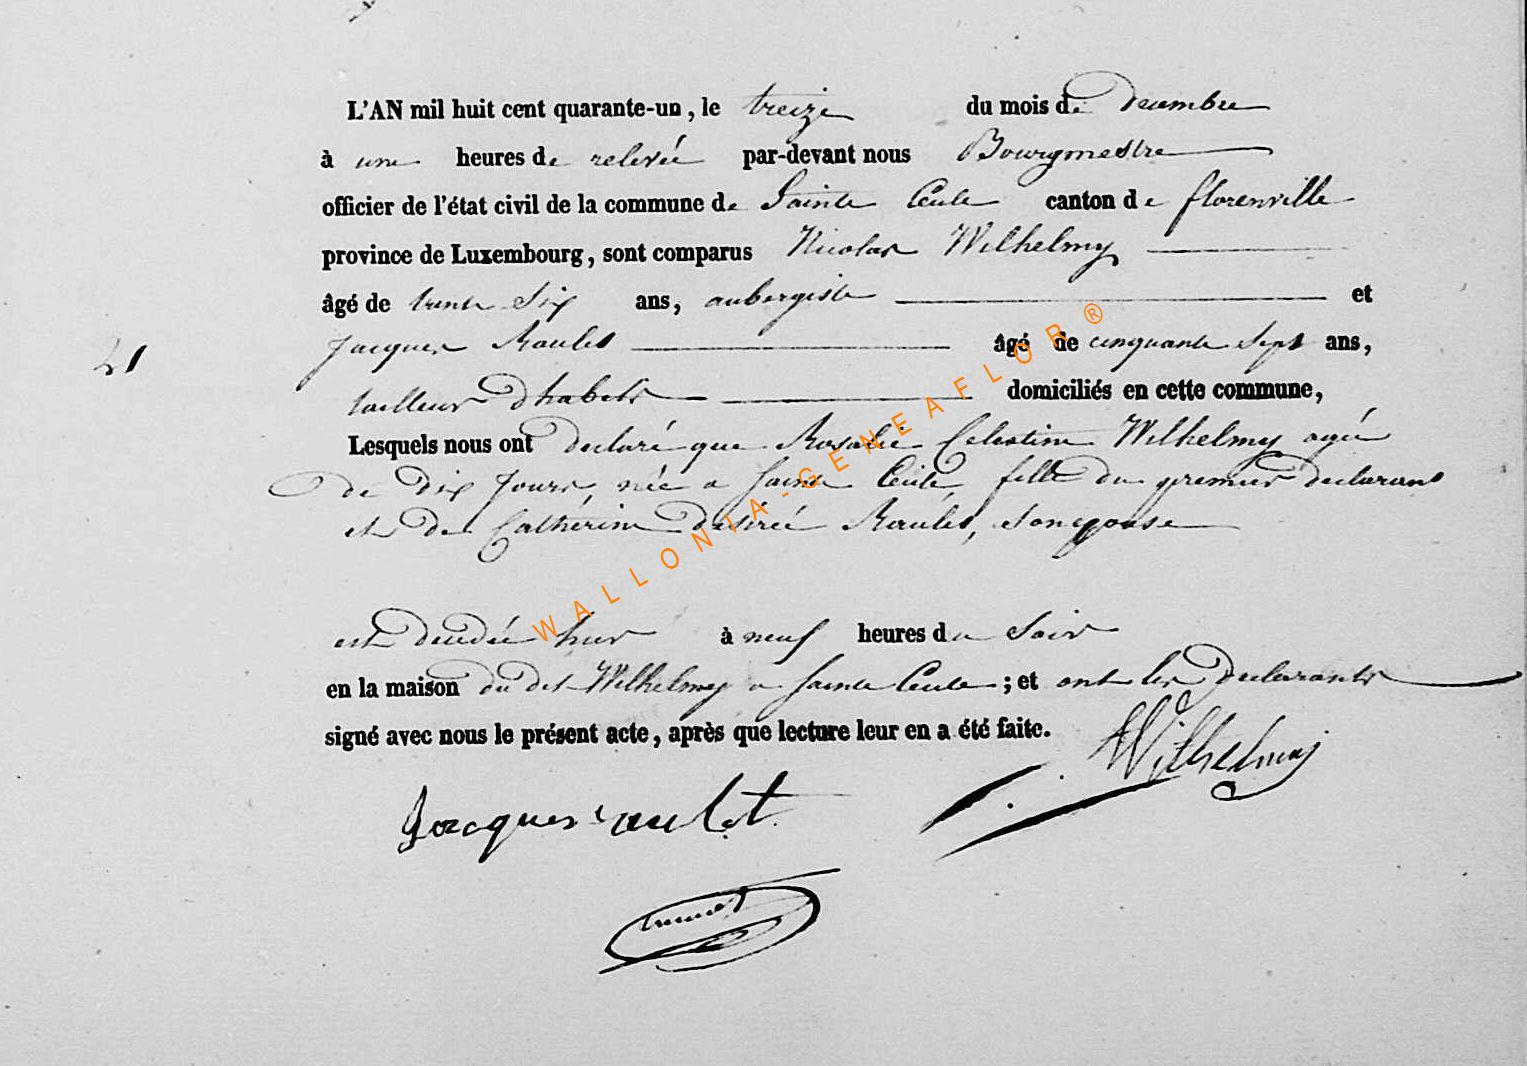 L'AN mil huit cent quarante-un, le treize du mois de decembre
à une heures de relevée par-devant nous Bourgmestre
officier de l'état civil de la commune de Sainte Cecile canton de florenville
province de Luxembourg, sont comparus Nicolas Wilhelmy
âgé de trente Six ans, aubergiste et
41 Jacques Raulet âgé de cinquante Sept ans,
tailleur d'habits domiciliés en cette commune,
Lesquels nous ont declaré que Rosalie Celestine Wilhelmy agée
de dix Jours, née a Sainte Cecile, fille du premier declarant
et de Cathérine désirée Raulet, son epouse
est décédée hier à neuf heures du Soir
en la maison du dit Wilhelmy a Sainte Cecile ; et ont les declarants
signé avec nous le présent acte, après que lecture leur en a été faite.
Wilhelmy
Jacques raulet
WALLONIA-GENEAFLOR®